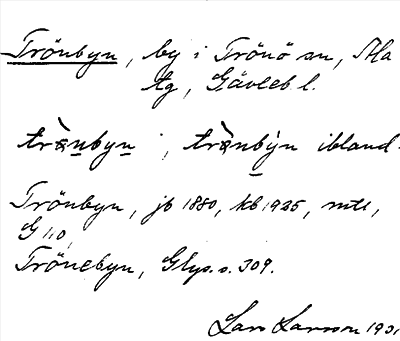 Trönbyn, by i Trönö sn, Ala
tg, Gävleb l.
trö̀nbyn ; trö̀nbýn ibland.
Trönbyn, jb 1880, kb 1925, mtl,
G 110,
Trönebyn, Glys. s. 309.
Lars Larsson 1931